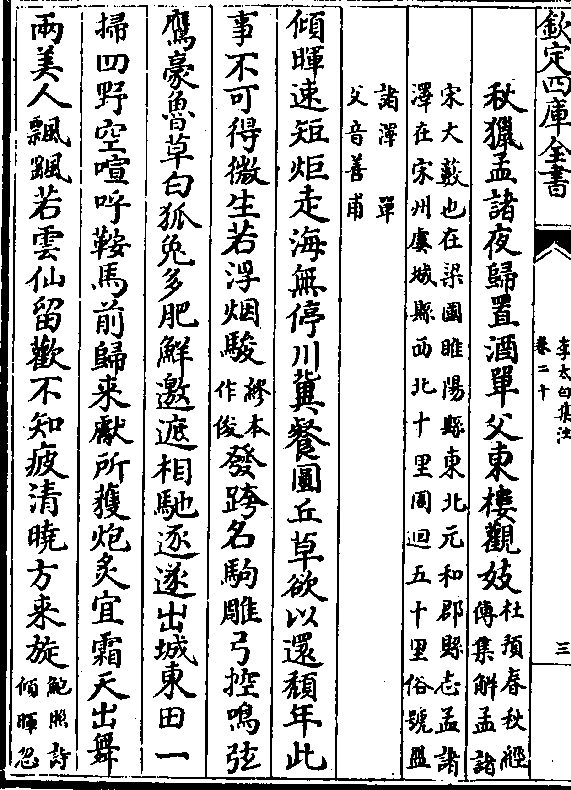 欽定四庫全書
李太白集注
卷二十
三
秋獵孟諸夜歸置酒單父東樓觀妓
杜預春秋經
傳集解孟諸
宋大藪也在梁國睢陽縣東北元和郡縣志孟諸
澤在宋州虞城縣西北十里周迴五十里俗號盟
諸澤單
父音善甫
傾暉速短炬走海無停川冀餐圓丘草欲以還頹年此
事不可得微生若浮烟駿
繆本
作俊
發跨名駒雕弓控鳴弦
鷹豪魯草白狐兔多肥鮮邀遮相馳逐遂出城東田一
掃四野空喧呼鞍馬前歸来獻所獲炮炙宜霜天出舞
兩美人飄颻若雲仙留歡不知疲清曉方来旋
鮑照詩
傾暉忽